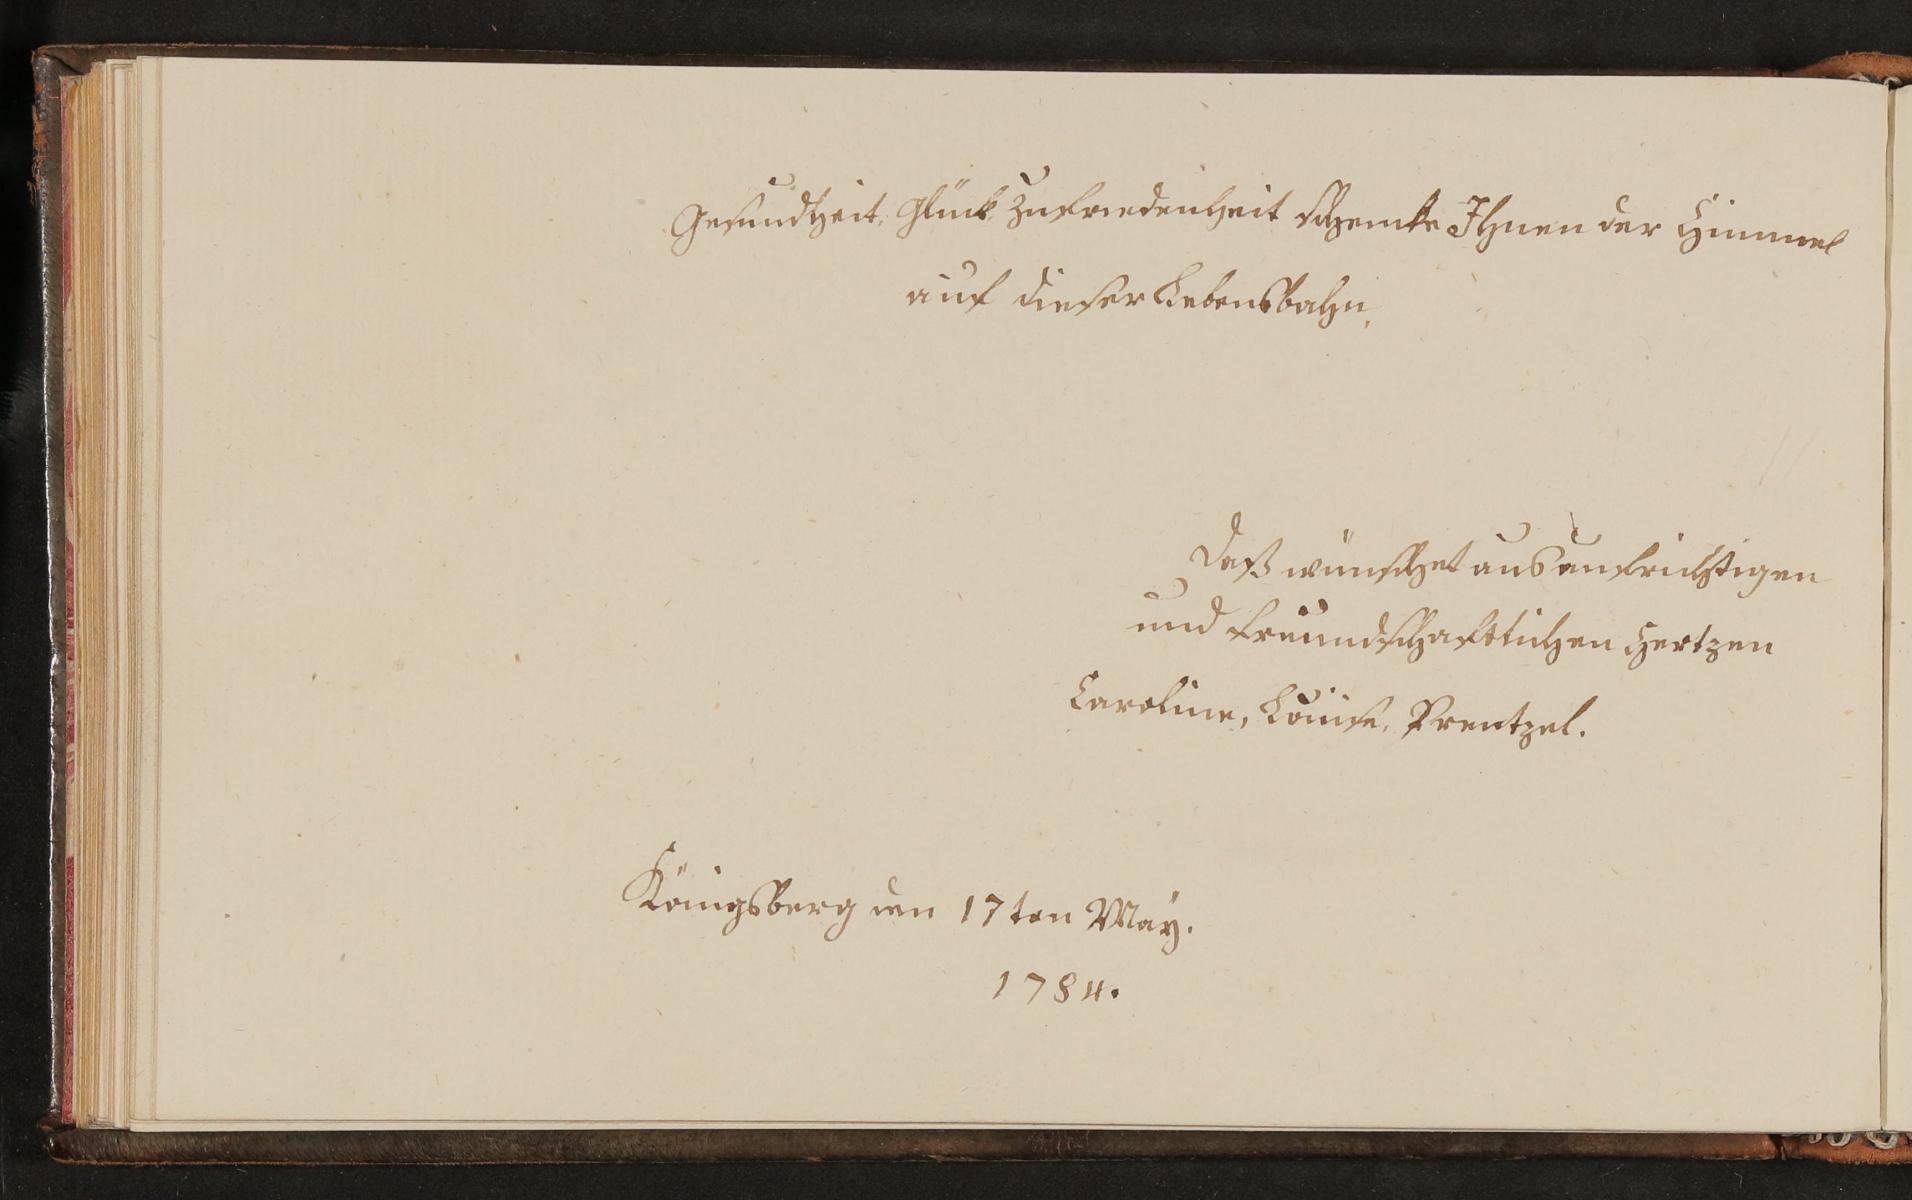 Gesundheit, Glück Zufriedenheit schencke Ihnen der Himmel
auf dieser Lebensbahn,
Daß wünschet aus aufrichtigen
und freundschaftlichen Hertzen
Caroline, Louise, Prentzel.
Königsberg den 17ten May.
1784.